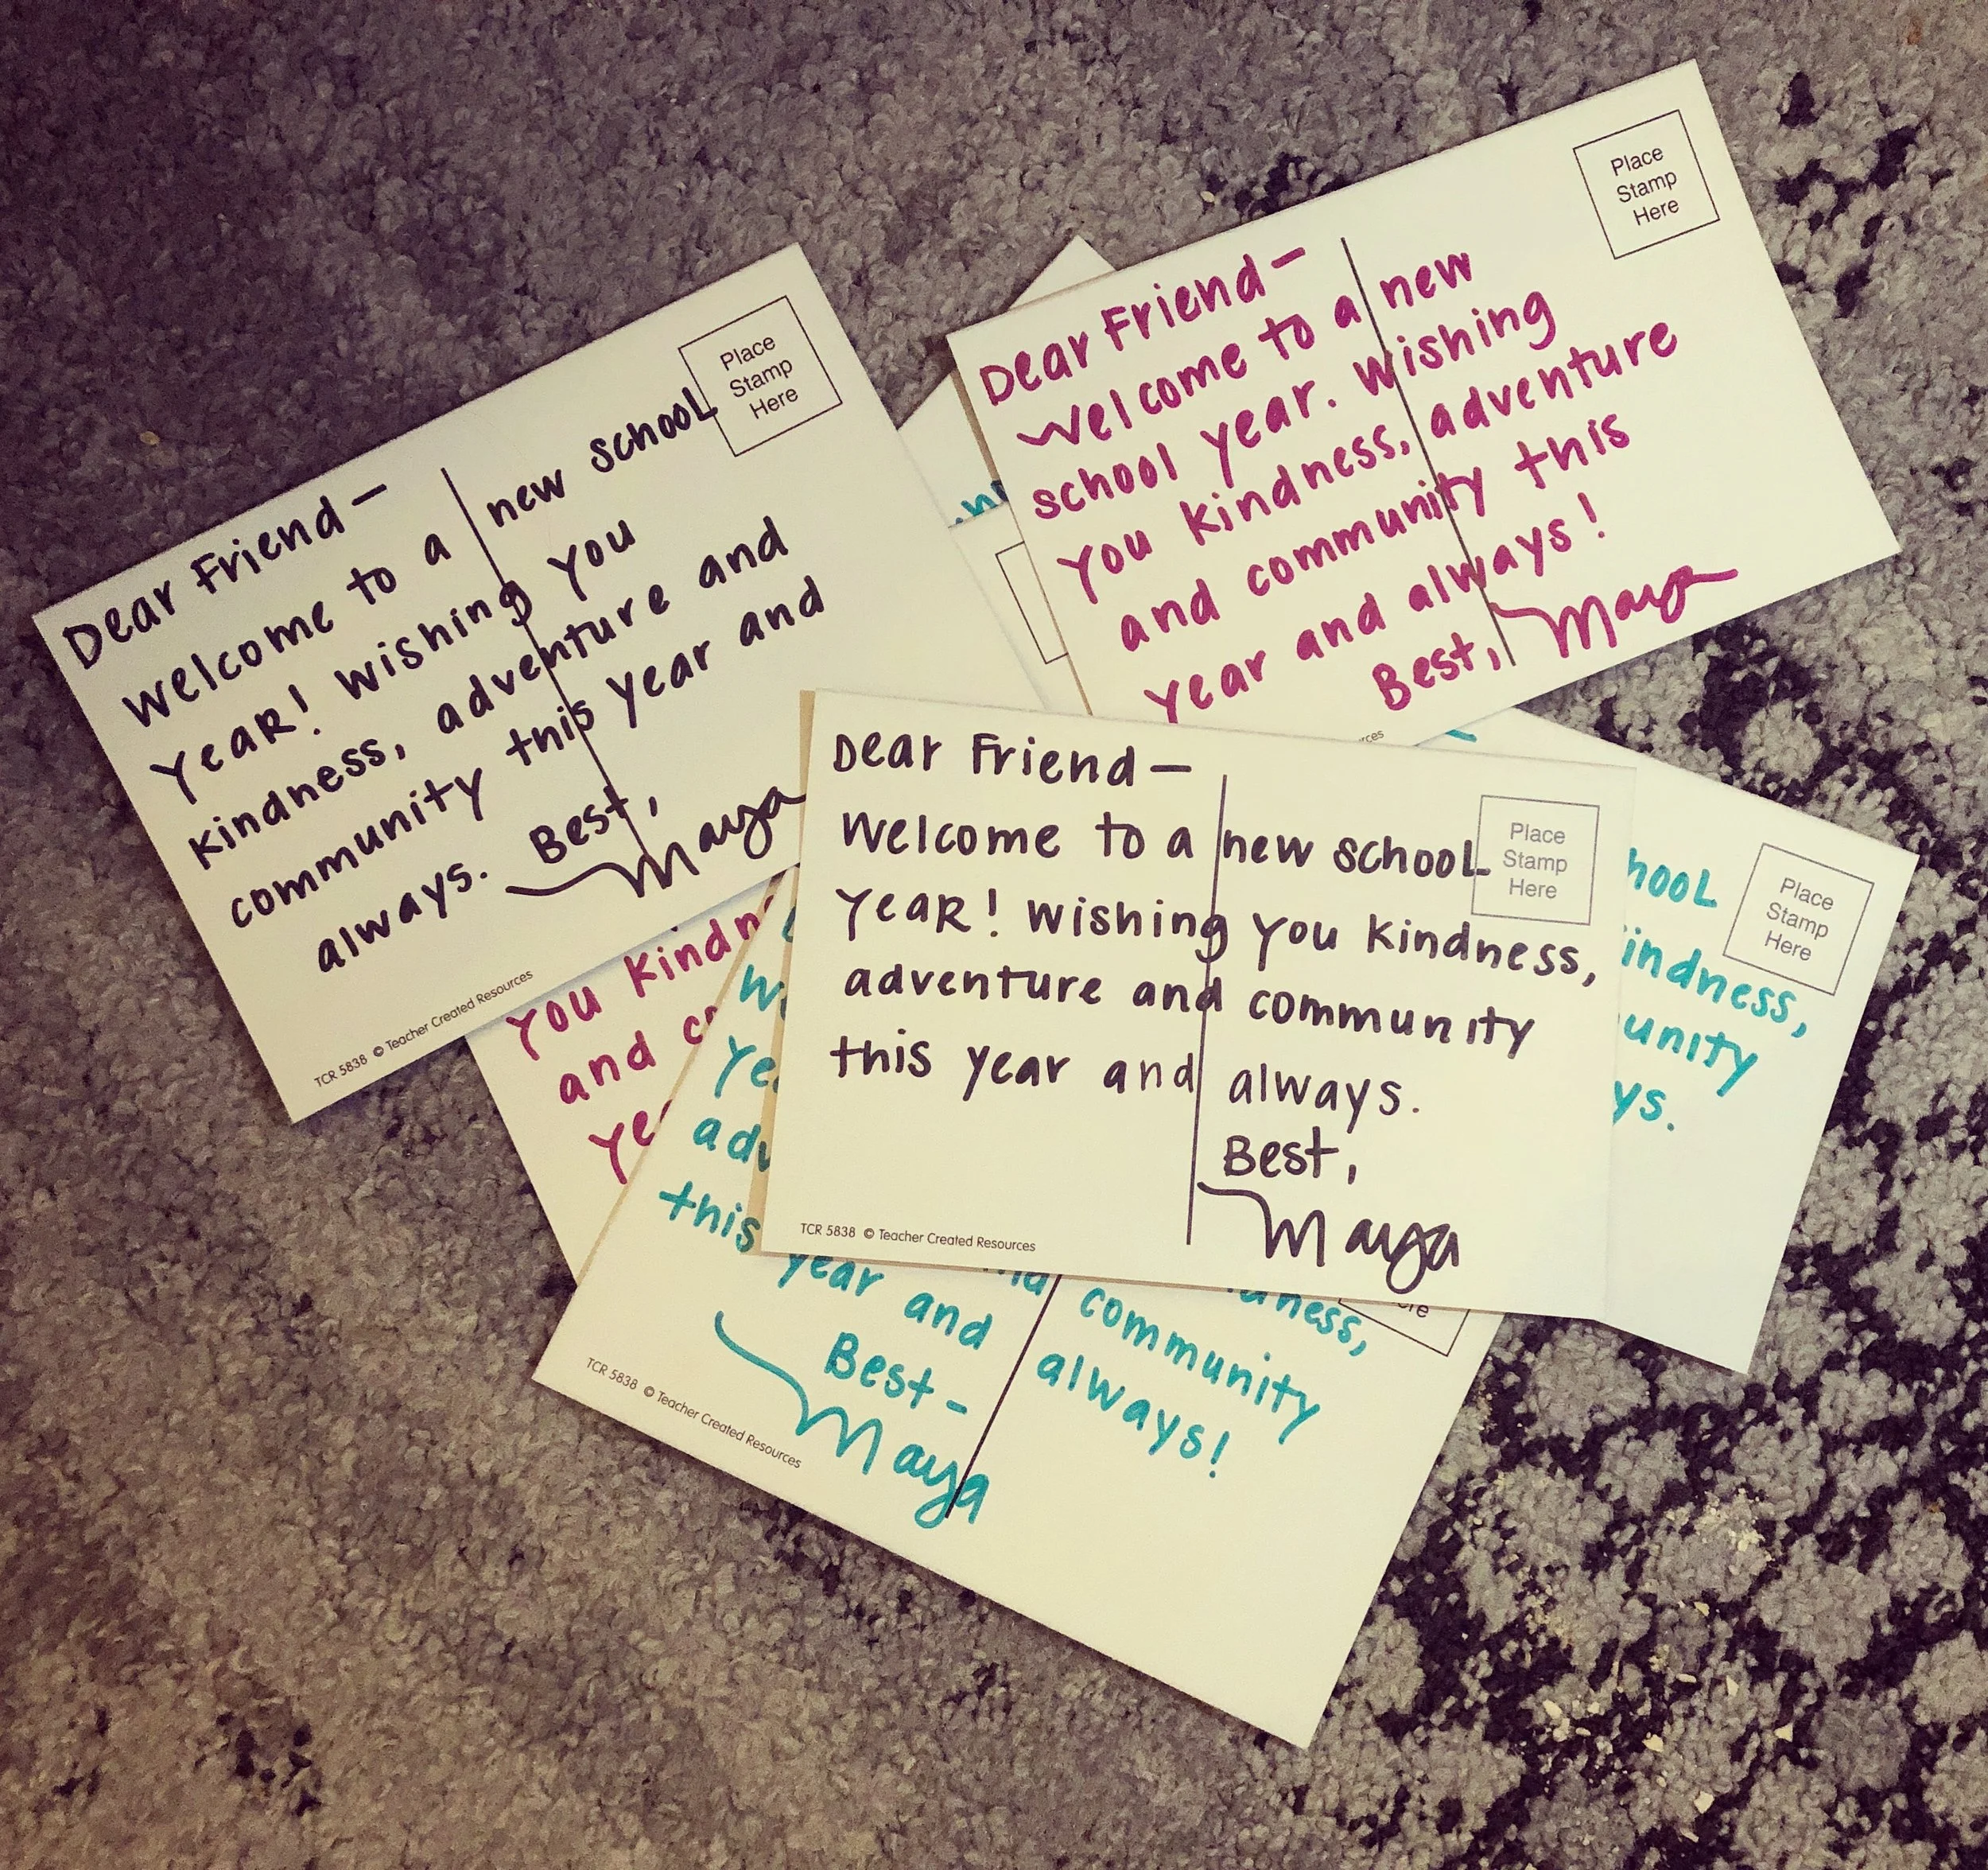 Dear Friend—
Welcome to a new school
Year! Wishing you
kindness, adventure and
community this year and
always. Best,
Maya
Place
Stamp
Here
TCR 5838 © Teacher Created Resources
Dear Friend—
Welcome to a new
school year. Wishing
you kindness, adventure
and community this
year and always!
Best, Maya
Place
Stamp
Here
Dear Friend—
Welcome to a new school
Year! Wishing you kindness,
adventure and community
this year and always.
Best,
Maya
Place
Stamp
Here
TCR 5838 © Teacher Created Resources
you
and
community
this year and always!
Best-
Maya
TCR 5838 © Teacher Created Resources
Place
Stamp
Here